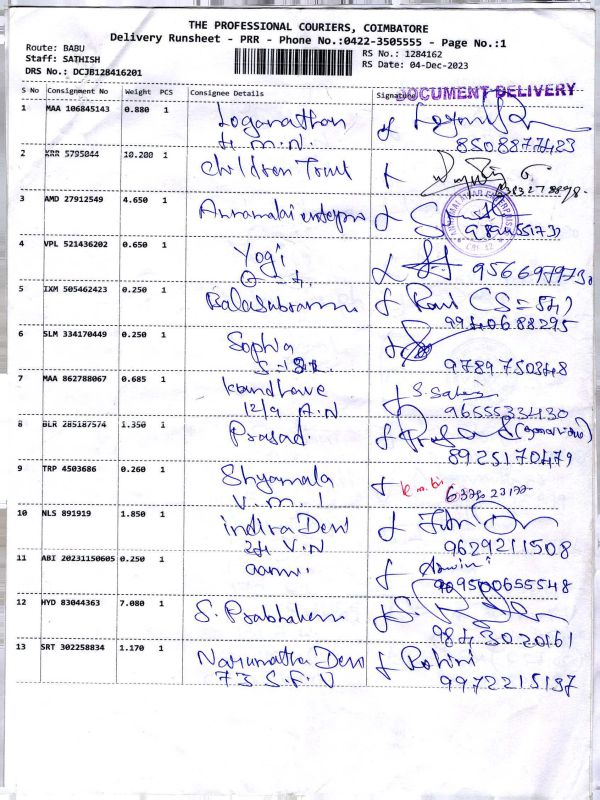 THE PROFESSIONAL COURIERS, COIMBATORE
Delivery Runsheet - PRR - Phone No.:0422-3505555 - Page No.:1
Route: BABU
Staff: SATHISH
DRS No.: DCJB128416201
RS No.: 1284162
RS Date: 04-Dec-2023
S No Consignment No Weight PCS Consignee Details Signature
DOCUMENT DELIVERY
1 MAA 106845143 0.880 1 Loganathan
H.M.N. 8508877423
2 KRR 5795044 10.200 1 Children Trust
3 AMD 27912549 4.650 1 Annamalai
4 VPL 521436202 0.650 1 Yogi
5 IXM 505462423 0.250 1 Balasubramani Ravi
9940688295
6 SLM 334170449 0.250 1 Sophia
9789750348
7 MAA 862788067 0.685 1 S. Sathis
12/9 A.N 9655533430
8 BLR 285187574 1.350 1 Prasad
8925170479
9 TRP 4503686 0.260 1 Shyamala
V.M.I
10 NLS 891919 1.850 1 Indira Devi
24 V.N 9629211508
11 ABI 20231150605 0.250 1
9500655548
12 HYD 83044363 7.080 1 S. Prabhakaran
9843020161
13 SRT 302258834 1.170 1 Devi Rohini
73 S.F.V 9972215137